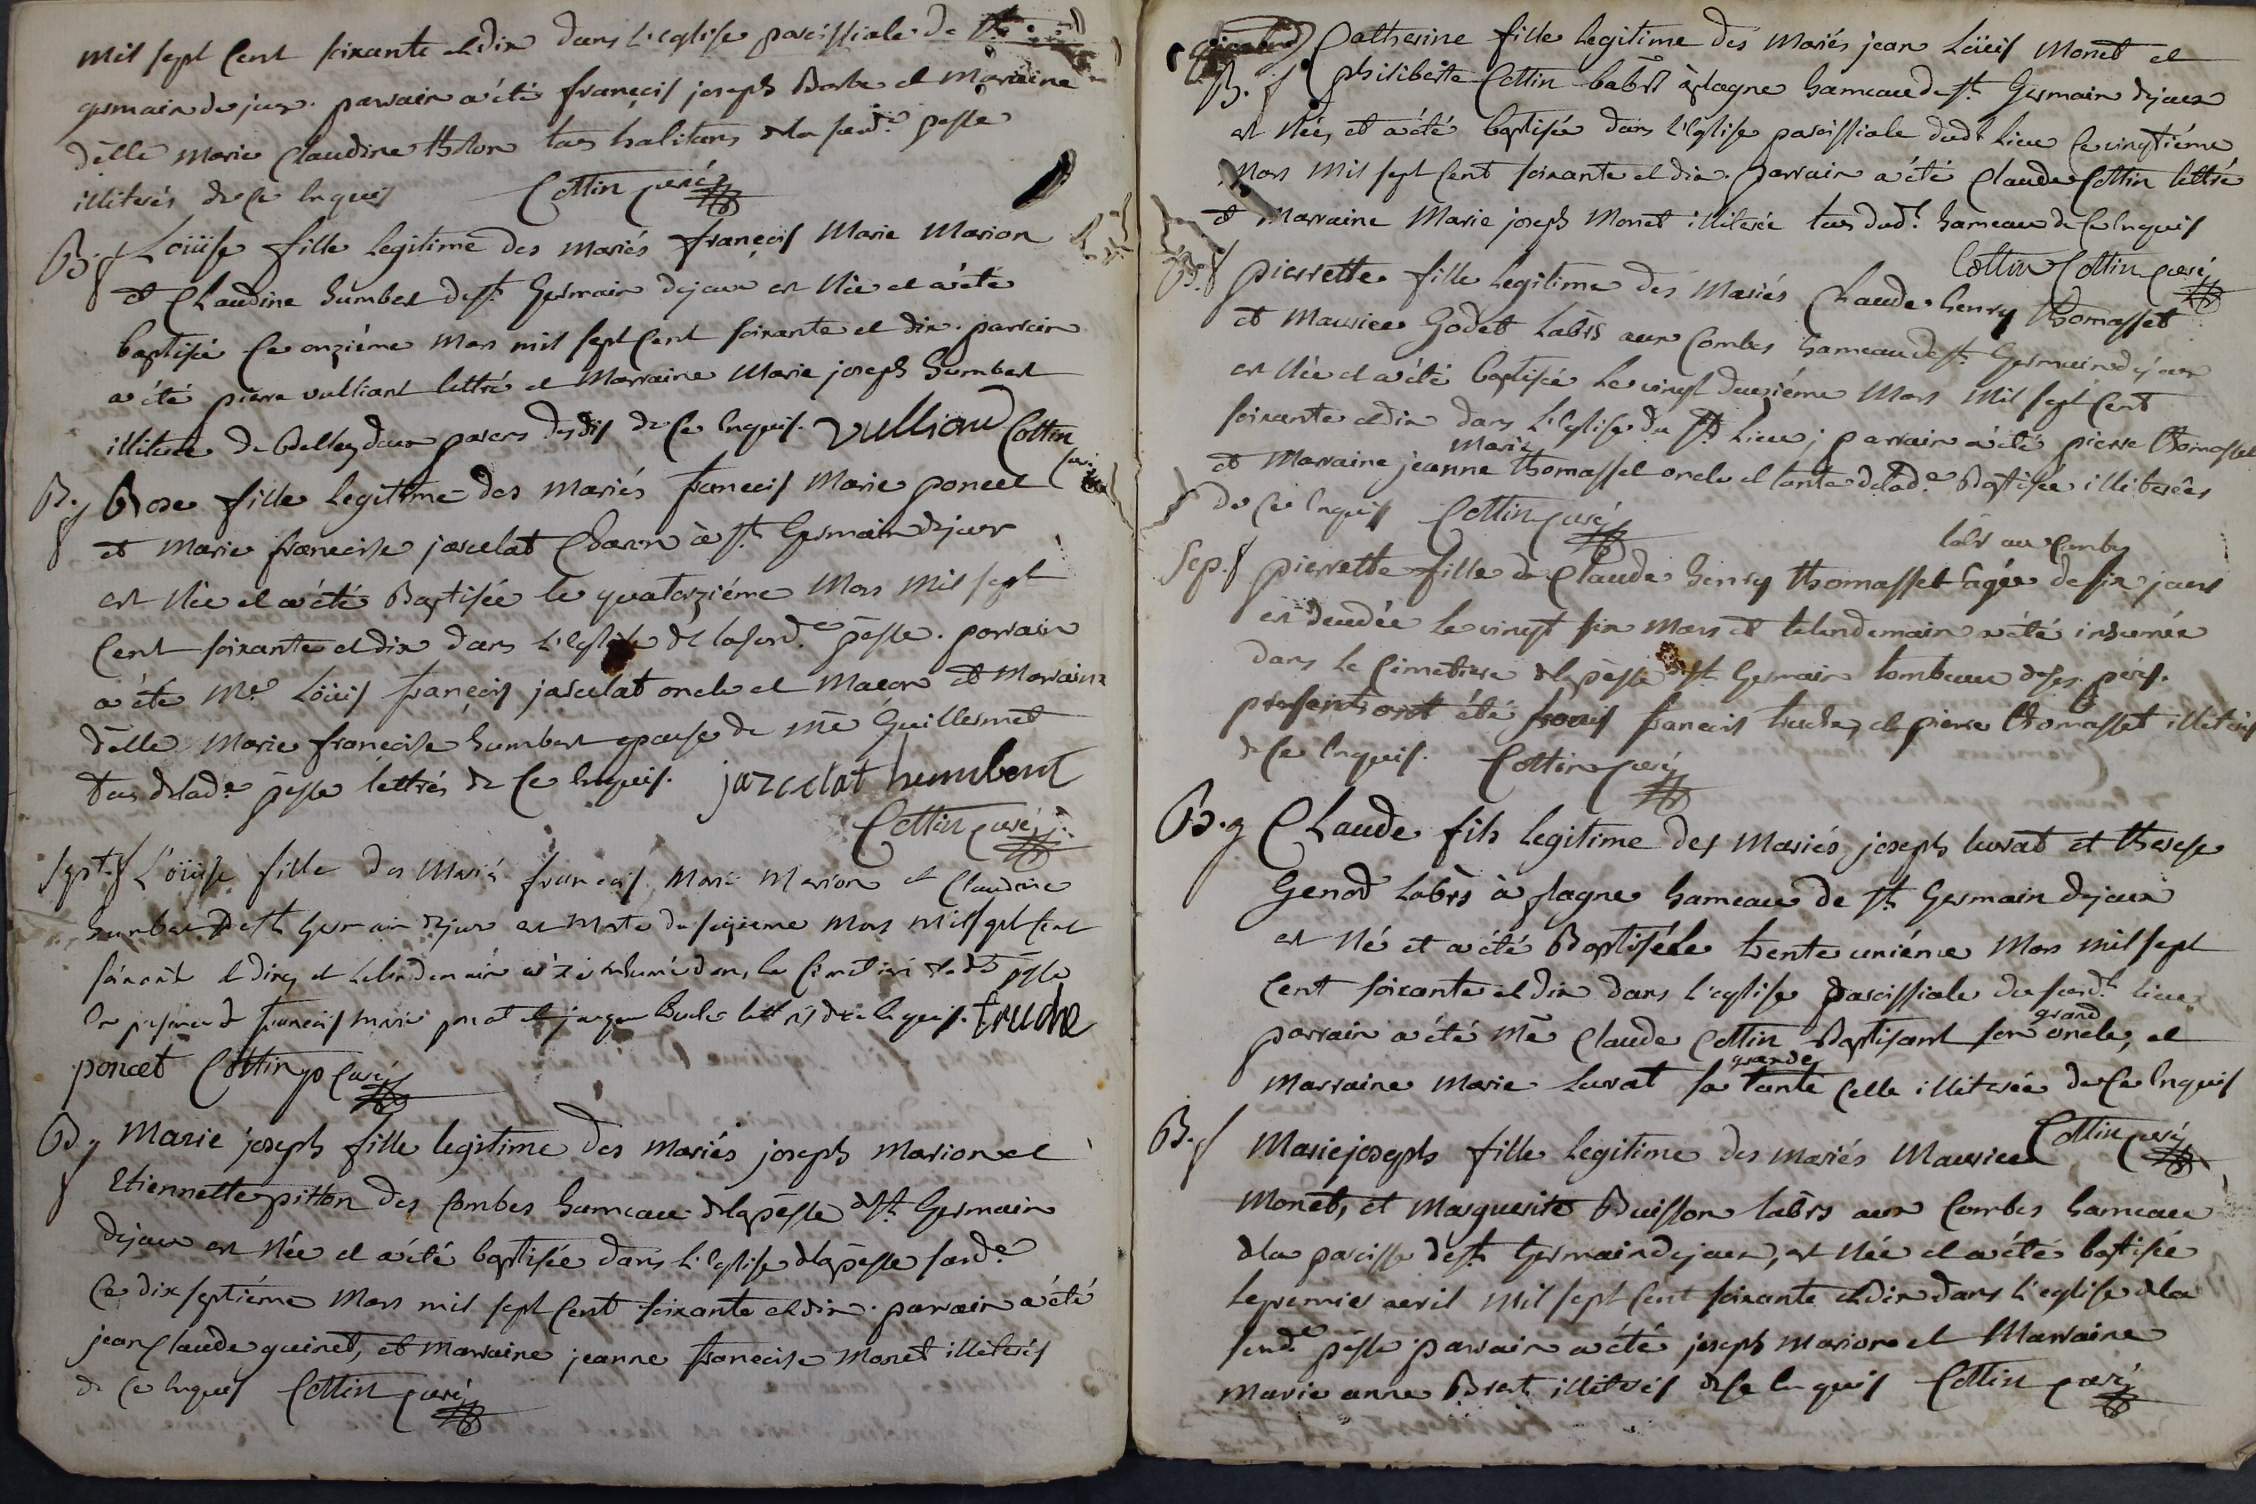 mil sept Cent soixante et dix dans L'eglise paroissiale de St
germain de joux. parrain a été françois joseph Borbe et Marraine
délle Marie Claudine tous habitans de la susd.e pesse
illiterés de Ce Enquis Cottin curé
B. Loüise fille legitime des mariés françois Marie Marion
et Claudine humbert de St Germain dejoux est Née et a été
baptisée Ce onziéme Mars mil sept Cent soixante et dix. parrain
a été pierre vulliand lettré et Marraine Marie joseph humbert
illiterée de Belley deux parens desdis de Ce Enquis. vulliand Cottin
curé
B. Rose fille legitime des Mariés francois Marie poncet
et Marie francoise jarcelat à St Germain dejoux
est Née et a été Baptisée le quatorziéme Mars Mil sept
Cent soixante et dix dans L'eglise de la susd.e pesse. parrain
a été Mre Loüis françois jarcelat oncle et et Marraine
délle Marie francoise humbert epouse de mre Guillermet
tous de lad.e pesse lettrés de Ce Enquis. jarcelat humbert
Cottin curé
Sept. Loüise fille des Mariés francois Marie Marion et Claudine
humbert de St Germain dejoux est Morte du seizieme Mars Mil sept Cent
soixante et dix et Lelendemain a été inhumée dans le Cimetiere de la d.e psse
En presence de francois marie poncet et lettrés de Ce Enquis. truche
poncet Cottin Curé
B. Marie joseph fille legitime des mariés joseph Marion et
Etiennette pitton des Combes hameau de la pesse de St Germain
dejoux est Née et a été baptisée dans L'eglise de la pesse susd.e
Ce dix septiéme Mars mil sept Cent soixante et dix. parrain a été
jean Claude guinet, et marraine jeanne francoise Monet illiterés
de Ce Enquis Cottin curé
Catherine fille legitime des Mariés jean Loüis Monet et
B. philiberte Cottin labrs à plagne hameau de St Germain dejoux
est Née, et a été baptisée dans L'Eglise paroissiale dud.t Lieu Ce vingtiéme
Mars Mil sept Cent soixante et dix. parrain a été Claude Cottin lettré
et Marraine Marie joseph Monet illiterée tous dud.t hameau de Ce Enquis
Cottin Cottin curé
B. pierrette fille legitime des Mariés Claude henry thomasset
et Maurice Godet labrs aux Combes hameau de St Germain dejoux
est Née et a été baptisée Le vingt deuxiéme Mars Mil sept Cent
soixante et dix dans L'eglise du dt Lieu; parrain a été pierre thomasset
marie
et Marraine jeanne thomasset oncle et tante de lad.e Baptisée illiterées
de Ce Enquis Cottin curé
labr aux Combes
Sep. pierrette fille de Claude henry thomasset agée de six jours
est decedée Le vingt six Mars et lelendemain a été inhumée
dans Le Cimetiere de la pesse de St Germain tombeau de ses péres.
presents ont été francois truche, et pierre thomasset illiterés
de Ce Enquis. Cottin curé
B. Claude fils legitime des Mariés joseph lurat et therese
Genod labrs à plagne hameau de St Germain dejoux
est Né et a été Baptisé le trente uniéme Mars mil sept
Cent soixante et dix dans L'eglise paroissiale du susd.t Lieu
grand
parrain a été Mre Claude Cottin Baptisant son oncle, et
grande
marraine Marie Lurat sa tante Celle illiterée de Ce Enquis
Cottin curé
B. Marie joseph fille legitime des mariés Maurice
Monet, et Marguerite Buisson labrs aux Combes hameau
de la paroisse de St Germain dejoux, est Née et a été baptisée
Le premier avril Mil sept Cent soixante et dix dans L'eglise de la
susd.e pesse parrain a été joseph Marion et Marraine
Marie anne Brest illiterés de Ce Enquis Cottin curé